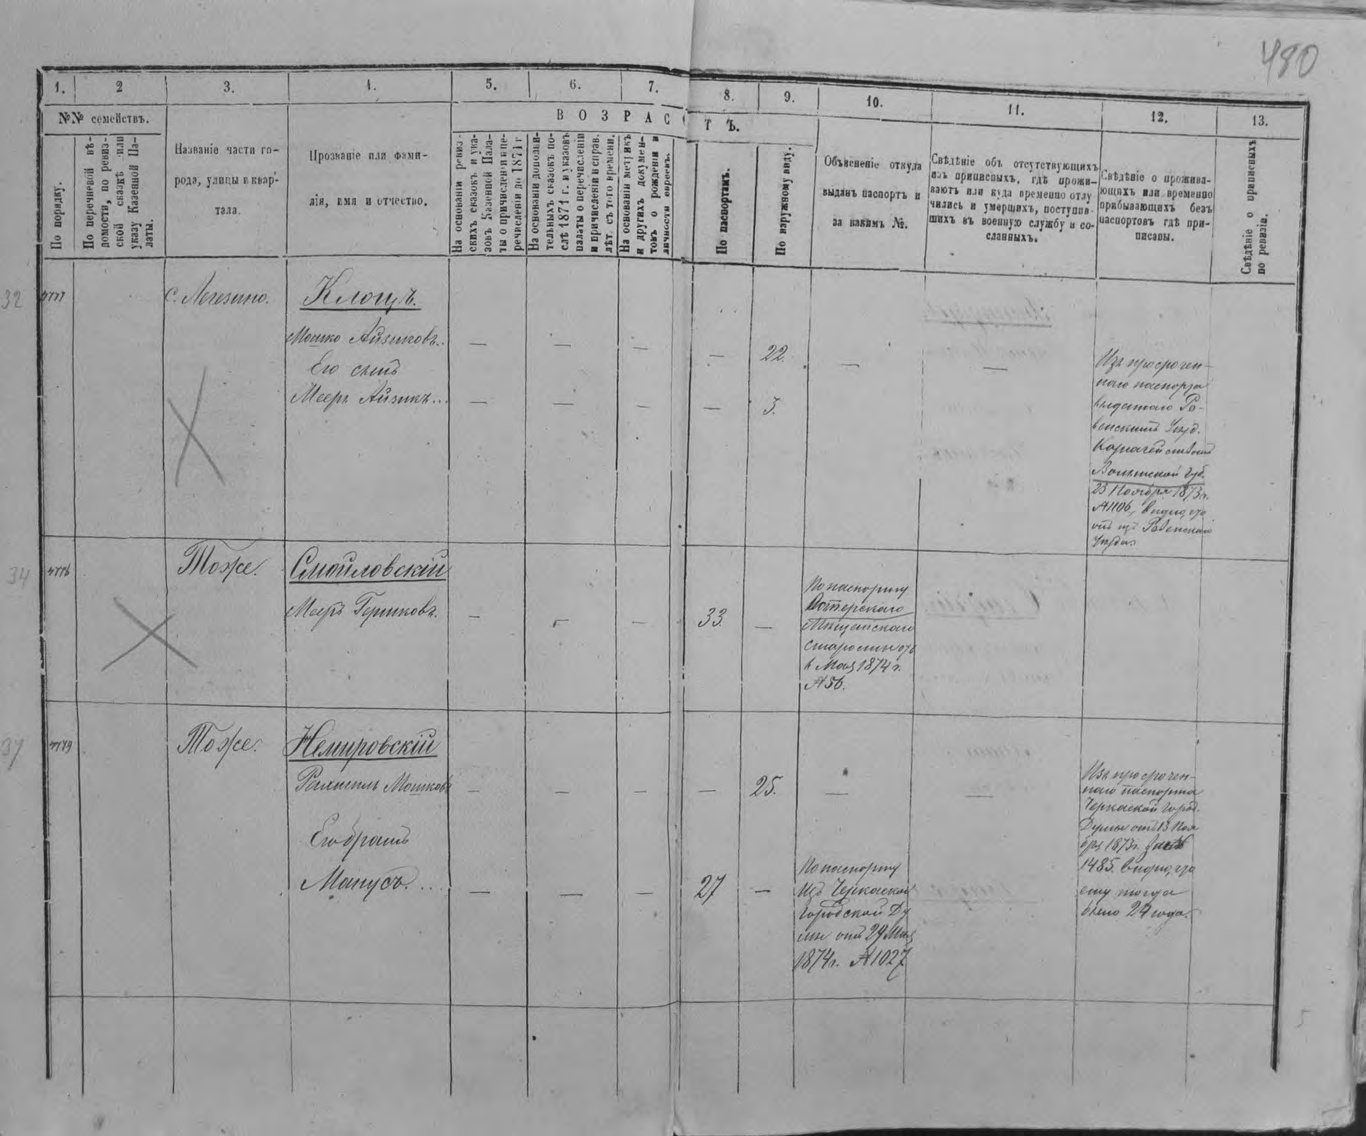 480
1.
2
3.
4.
5.
6.
7.
8.
9.
10.
11.
12.
13.
№№ семействъ.
ВОЗРАСТЪ.
По порядку.
По перечневой вѣ-
домости, по ревиз-
ской сказкѣ или
указу Казенной Па-
латы.
Названіе части го-
рода, улицы и квар-
тала.
Прозваніе или фами-
лія, имя и отчество.
На основаніи ревиз-
скихъ сказокъ и ука-
зовъ Казенной Пала-
ты о причисленіи и пе-
речисленіи до 1874 г.
На основаніи дополни-
тельныхъ сказокъ по-
слѣ 1871 г. и указовъ
палаты о перечисленіи
и причисленіи и справ.
лѣт. съ того времени.
На основаніи метрикъ
и другихъ докумен-
товъ о рожденіи и
личности евреевъ.
По паспортамъ.
По наружному виду.
Объясненіе откуда
выданъ паспортъ и
за какимъ №.
Свѣдѣніе объ отсутствующихъ
изъ приписныхъ, гдѣ прожи-
ваютъ или куда временно отлу
чились и умершихъ, поступив-
шихъ въ военную службу и со-
сланныхъ.
Свѣдѣніе о прожива-
ющихъ или временно
прибывающихъ безъ
паспортовъ гдѣ при-
писаны.
Свѣдѣніе о приписныхъ
по ревизіи.
32
с. Легезино.
Клоцъ.
Мошко Айзиковъ.
— — — — 22. — —
Его сынъ
Мееръ Айзикъ...
— — — — 3.
Изъ просрочен-
наго паспорта
выданнаго Ро-
венскимъ Уѣзд.
Волынской Губ.
23 Ноября 1873 г.
№1106, видно, что
Уѣзда
34
Тоже.
Смойловскій
Мееръ Гершковъ.
— — — 33. —
По паспорту
Остерскаго
Мѣщанскаго
Старосты отъ
6 Мая 1874 г.
№56.
37
Тоже.
Немировскій
Мошковъ
— — — — 25. — —
Изъ просрочен-
наго паспорта
Черкаской Город.
Думы отъ 13 Ноя-
бря 1873 г. за №
1485. видно, что
ему тогда
было 24 года.
Его братъ
Манусъ...
— — — 27 —
По паспорту
Изъ Черкаской
Городской Ду
мы отъ 29 Мая
1874 г. №1027